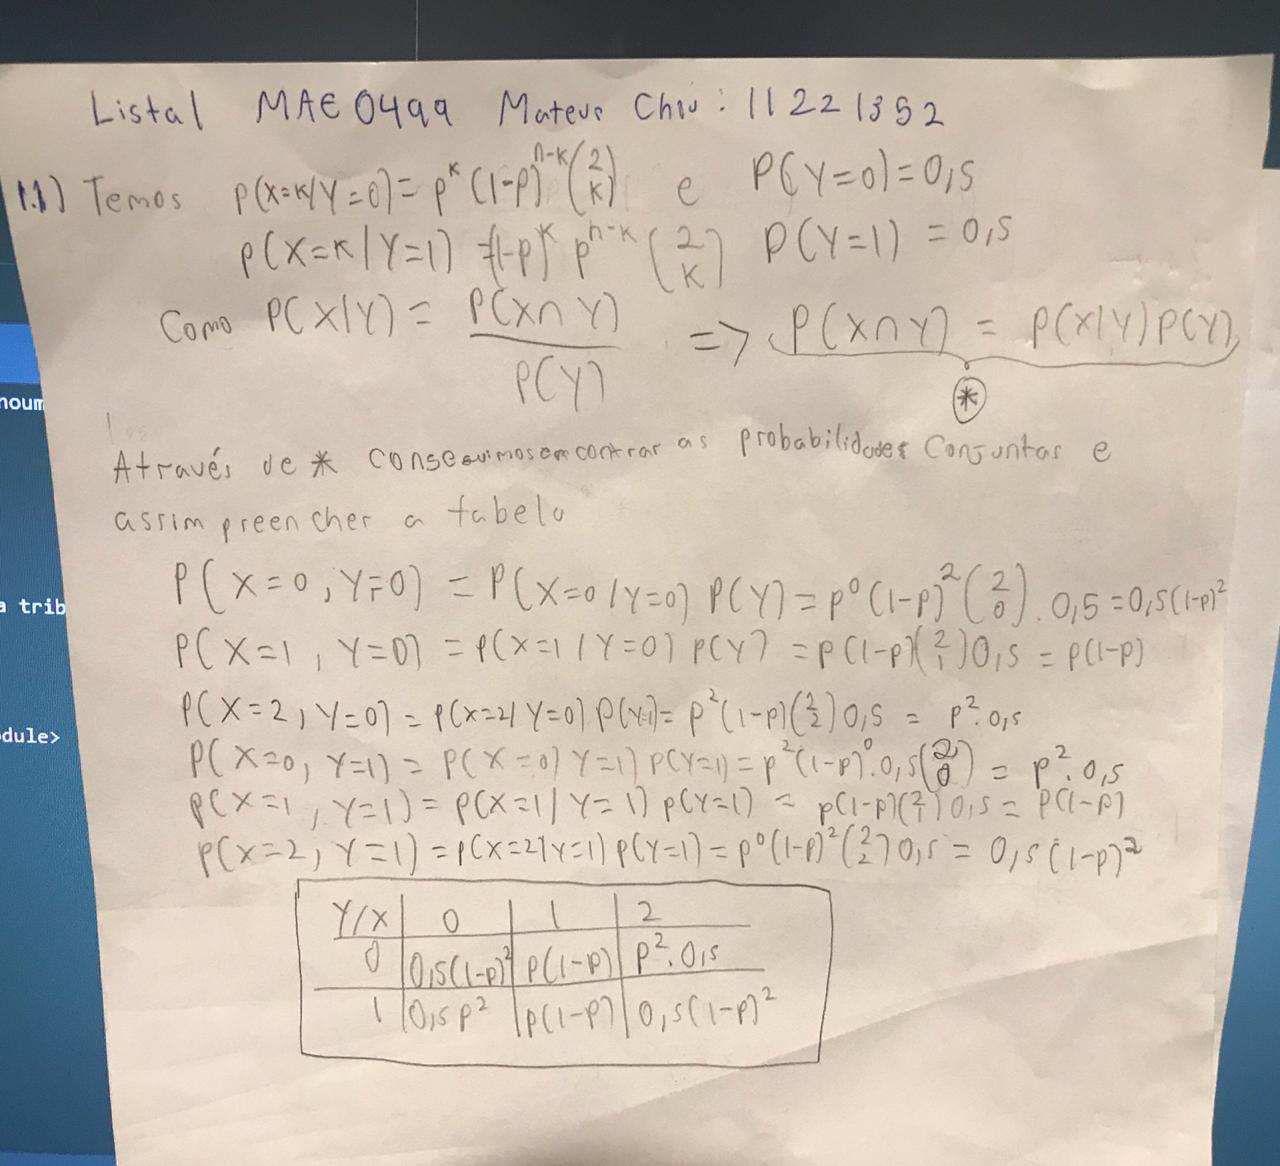 Lista1 MAE0499 Mateus Chiu: 11221352
1.1) Temos P(X=K/Y=0) = p^K (1-p)^{n-K} (2 K) e P(Y=0)=0,5
P(X=K|Y=1) =(1-p)^K p^{n-K} (2 K) P(Y=1) = 0,5
Como P(X|Y) = P(X∩Y) / P(Y) => P(X∩Y) = P(X|Y)P(Y)
*
noum
Através de * conseguimos encontrar as probabilidades Conjuntas e
assim preencher a tabela
P(X=0, Y=0) = P(X=0/Y=0) P(Y) = p^0 (1-p)^2 (2 0) . 0,5 = 0,5(1-p)^2
a trib
P(X=1, Y=0) = P(X=1/Y=0) P(Y) = p(1-p)(2 1)0,5 = p(1-p)
P(X=2, Y=0) = P(X=2/Y=0) P(Y=1) = p^2 (1-p)(2 2)0,5 = p^2.0,5
dule>
P(X=0, Y=1) = P(X=0/Y=1) P(Y=1) = p^2 (1-p)^0.0,5(2 0) = p^2.0,5
P(X=1, Y=1) = P(X=1/Y=1) P(Y=1) = p(1-p)(2 1)0,5 = P(1-p)
P(X=2, Y=1) = P(X=2/Y=1) P(Y=1) = p^0 (1-p)^2 (2 2)0,5 = 0,5(1-p)^2
Y/X 0 1 2
0 0,5(1-p)^2 p(1-p) p^2.0,5
1 0,5 p^2 p(1-p) 0,5(1-p)^2